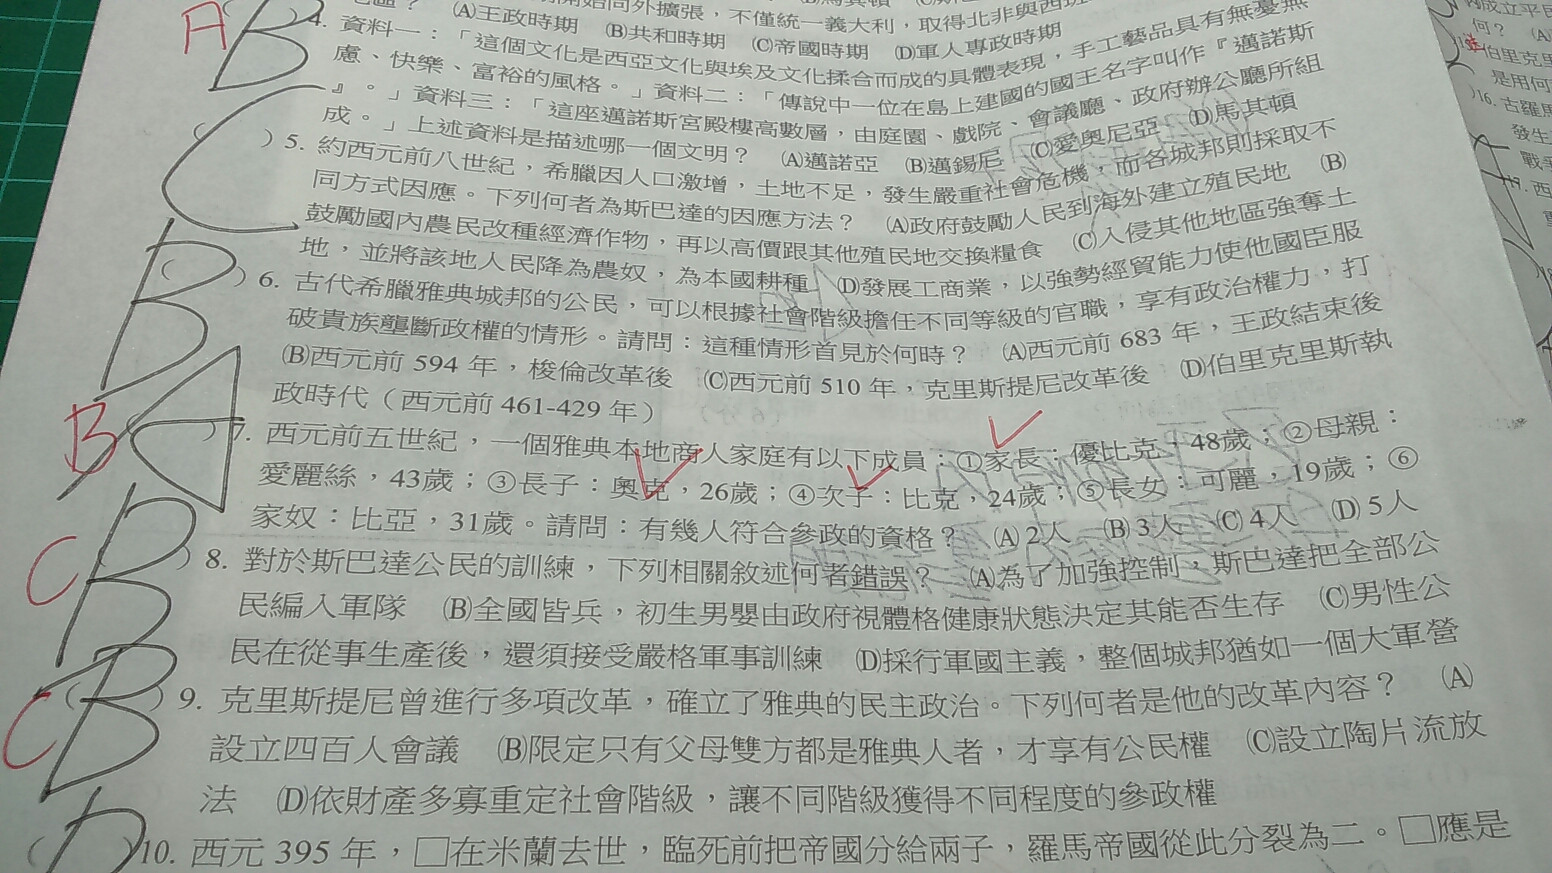 (A)王政時期 (B)共和時期 (C)帝國時期 (D)軍人專政時期
A
B
4. 資料一：「這個文化是西亞文化與埃及文化揉合而成的具體表現，手工藝品具有無憂無
慮、快樂、富裕的風格。」資料二：「傳說中一位在島上建國的國王名字叫作『邁諾斯
』。」資料三：「這座邁諾斯宮殿樓高數層，由庭園、戲院、會議廳、政府辦公廳所組
成。」上述資料是描述哪一個文明？ (A)邁諾亞 (B)邁錫尼 (C)愛奧尼亞 (D)馬其頓
C
( )5. 約西元前八世紀，希臘因人口激增，土地不足，發生嚴重社會危機，而各城邦則採取不
同方式因應。下列何者為斯巴達的因應方法？ (A)政府鼓勵人民到海外建立殖民地 (B)
鼓勵國內農民改種經濟作物，再以高價跟其他殖民地交換糧食 (C)入侵其他地區強奪土
地，並將該地人民降為農奴，為本國耕種 (D)發展工商業，以強勢經貿能力使他國臣服
B
( )6. 古代希臘雅典城邦的公民，可以根據社會階級擔任不同等級的官職，享有政治權力，打
破貴族壟斷政權的情形。請問：這種情形首見於何時？ (A)西元前 683 年，王政結束後
(B)西元前 594 年，梭倫改革後 (C)西元前 510 年，克里斯提尼改革後 (D)伯里克里斯執
政時代（西元前 461-429 年）
B
A
( )7. 西元前五世紀，一個雅典本地商人家庭有以下成員：①家長：優比克，48歲；②母親：
愛麗絲，43歲；③長子：奧克，26歲；④次子：比克，24歲；⑤長女：可麗，19歲；⑥
家奴：比亞，31歲。請問：有幾人符合參政的資格？ (A) 2人 (B) 3人 (C) 4人 (D) 5人
C
B
( )8. 對於斯巴達公民的訓練，下列相關敘述何者錯誤？ (A)為了加強控制，斯巴達把全部公
民編入軍隊 (B)全國皆兵，初生男嬰由政府視體格健康狀態決定其能否生存 (C)男性公
民在從事生產後，還須接受嚴格軍事訓練 (D)採行軍國主義，整個城邦猶如一個大軍營
C
B
( )9. 克里斯提尼曾進行多項改革，確立了雅典的民主政治。下列何者是他的改革內容？ (A)
設立四百人會議 (B)限定只有父母雙方都是雅典人者，才享有公民權 (C)設立陶片流放
法 (D)依財產多寡重定社會階級，讓不同階級獲得不同程度的參政權
( )10. 西元 395 年，□在米蘭去世，臨死前把帝國分給兩子，羅馬帝國從此分裂為二。□應是
伯里克里
是用何
)16. 古羅馬
發生